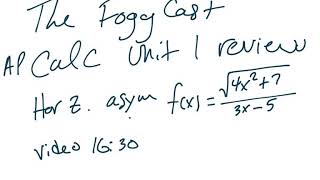 The Foggy Cast
AP Calc Unit 1 review
Horz. asym f(x) = √4x²+7 / 3x-5
video 16:30